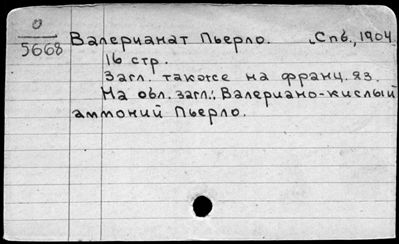 О
5668
Валерианат Пьерло. Спб, 1904.
16 стр.
Загл. также на франц. яз.
На обл. загл.: Валериано-кислый
аммоний Пьерло.